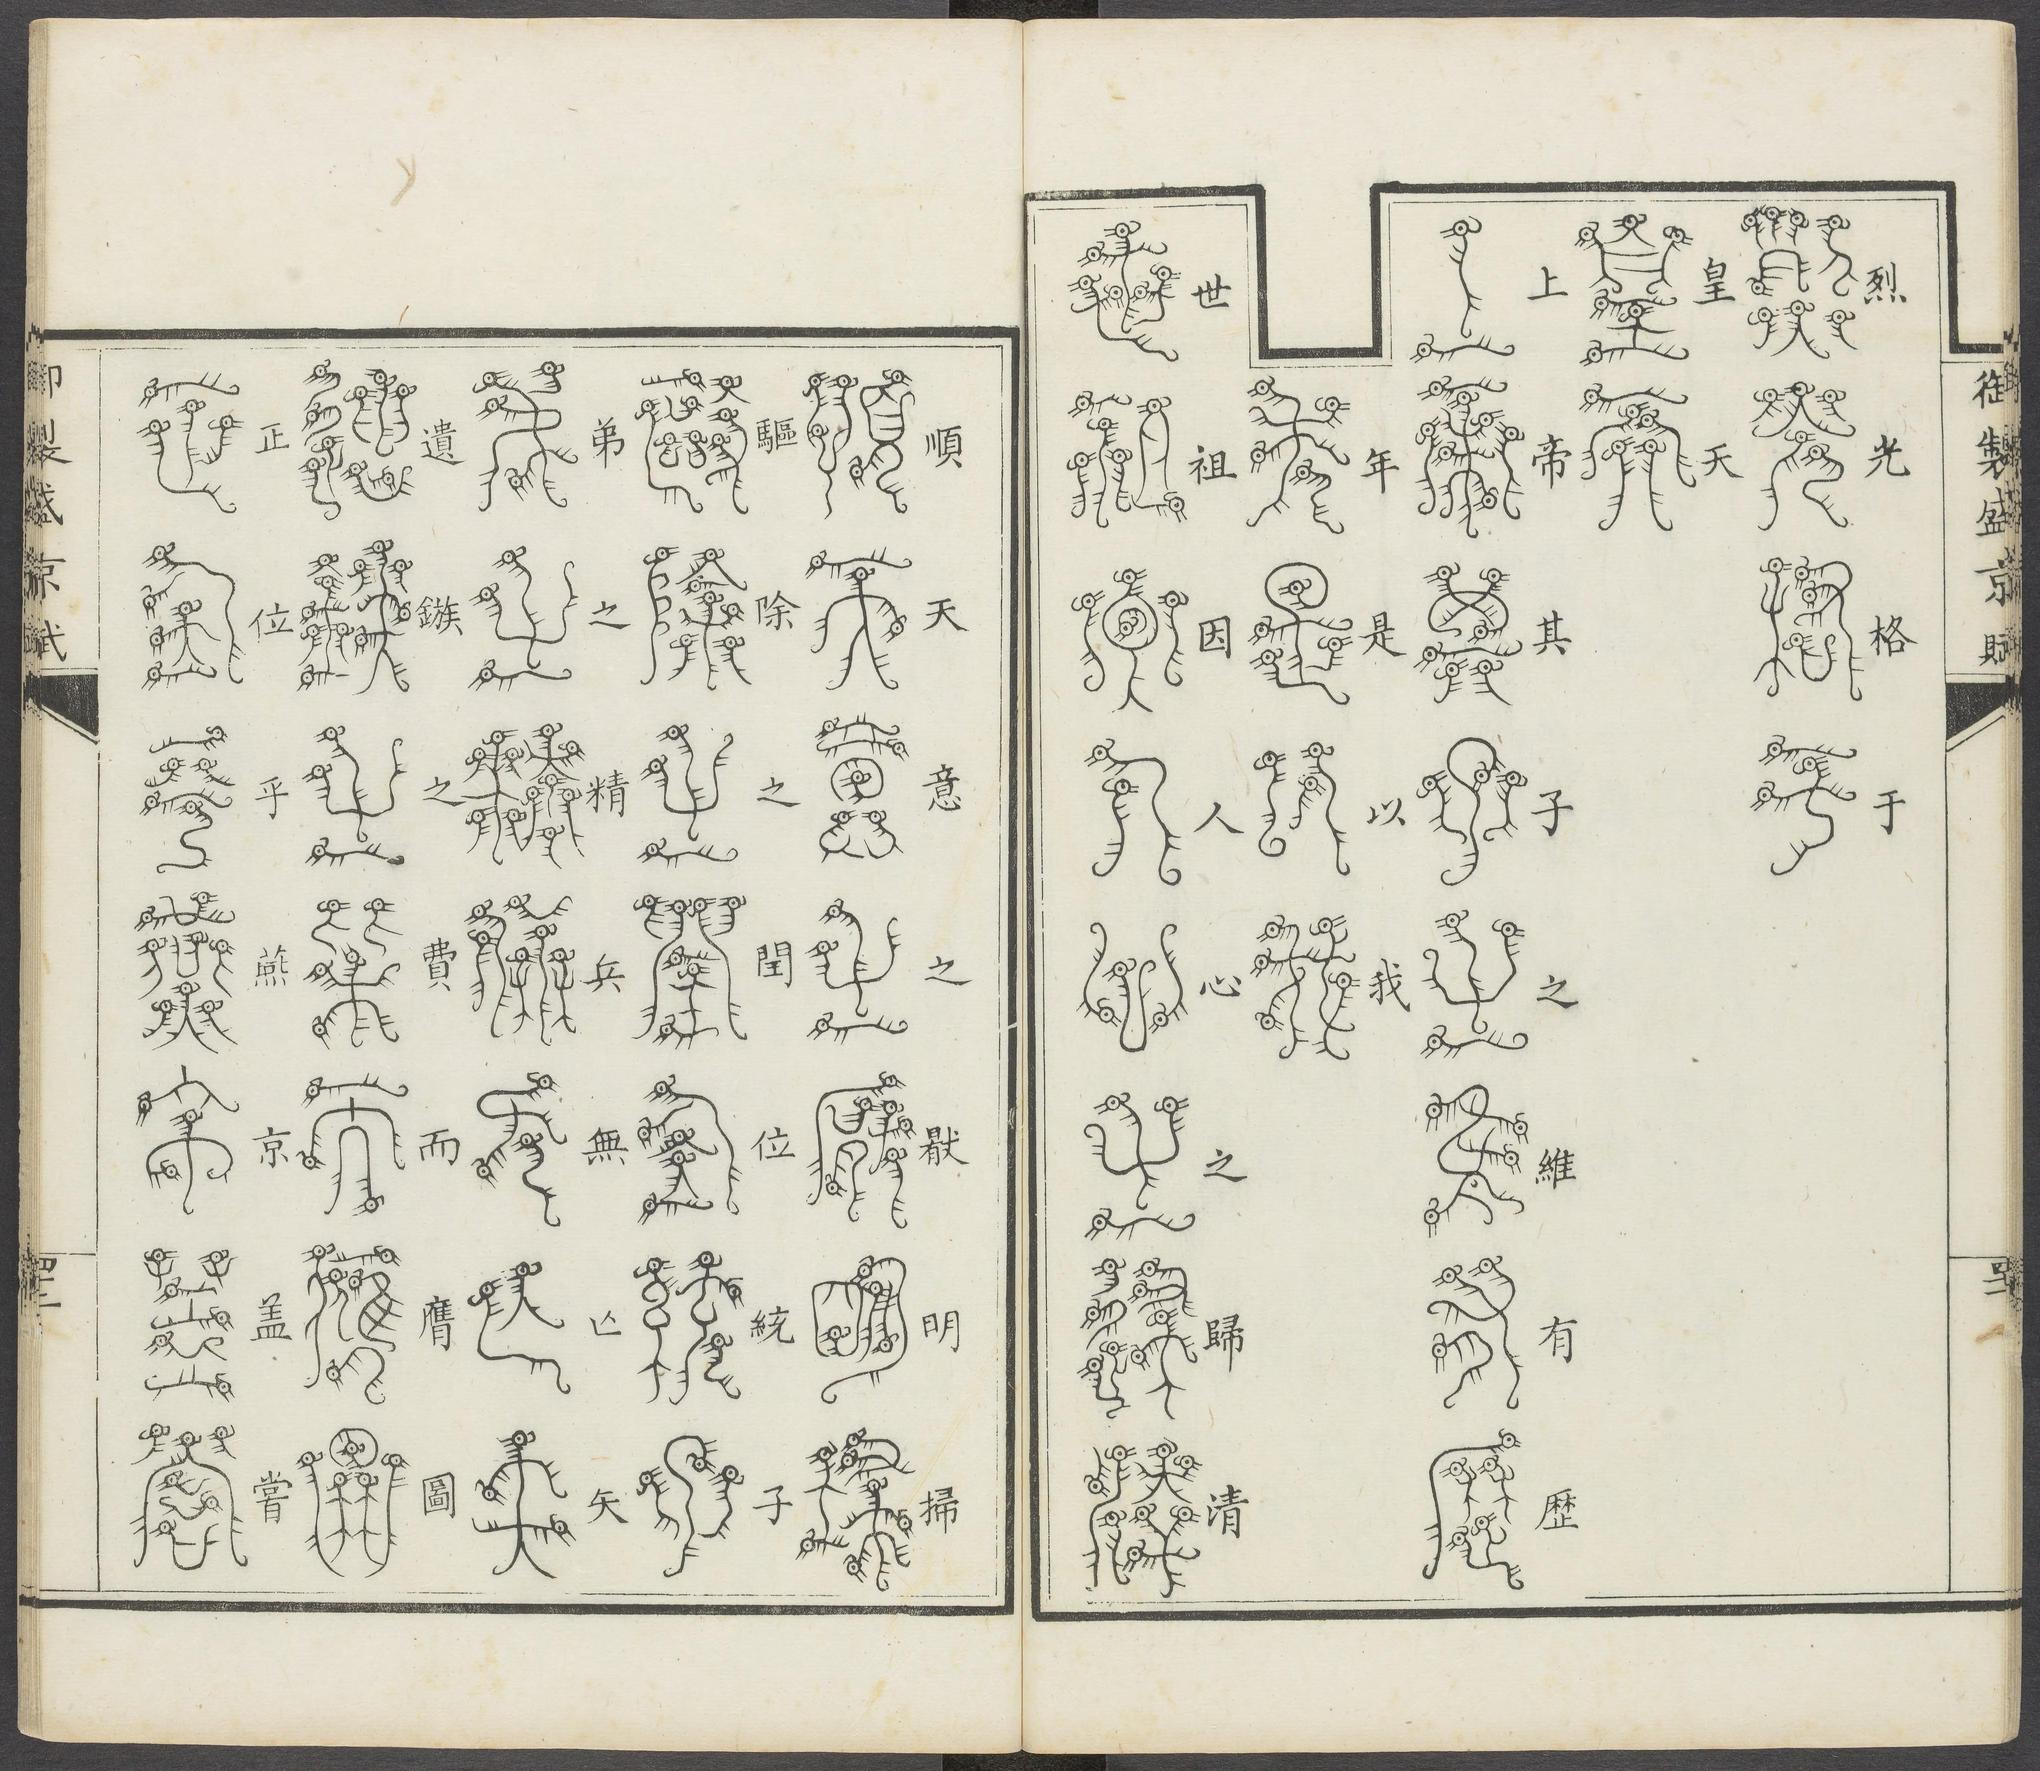 御製盛京賦
烈光格于
皇天
上帝其子之維有歷
年是以我
世祖因人心之歸清
順天意之厭明掃
驅除之閏位統子
弟之精兵無亡矢
遺鏃之費而膺圖
正位乎燕京盖嘗
御製盛京賦